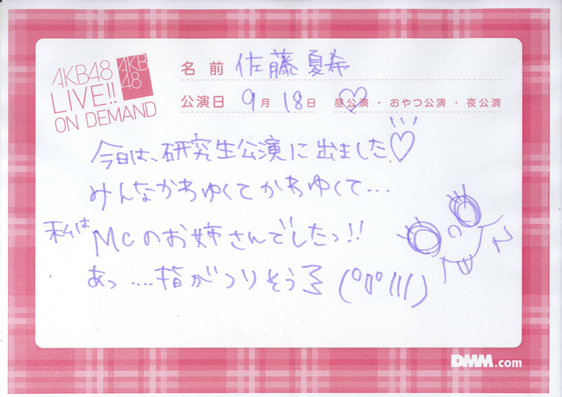 AKB48
LIVE!!
ON DEMAND
AKB
48
名前 佐藤夏希
公演日 9月18日 昼公演・おやつ公演・夜公演
今日は、研究生公演に出ました♡
みんなかわゆくてかわゆくて…
私はMCのお姉さんでしたっ!!
あっ....指がつりそう (ºдº lll)
DMM.com